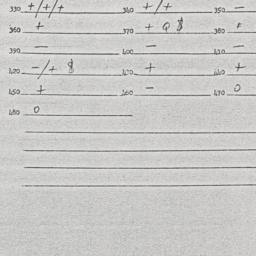 330 +/+/+ 340 +/+ 350 —
360 + 370 + Q $ 380
390 — 400 — 410 —
420 —/+ $ 430 + 440 +
450 + 460 — 470 0
480 0